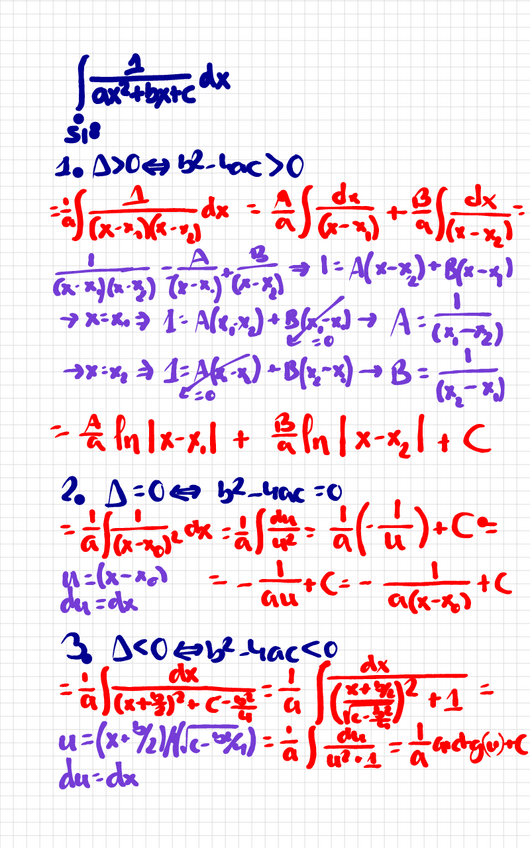 ∫ 1/(ax²+bx+c) dx
si:
1. Δ>0 ⇔ b²-4ac>0
= 1/a ∫ 1/((x-x₁)(x-x₂)) dx = A/a ∫ dx/(x-x₁) + B/a ∫ dx/(x-x₂) =
1/((x-x₁)(x-x₂)) = A/(x-x₁) + B/(x-x₂) ⇒ 1=A(x-x₂)+B(x-x₁)
→ x=x₁ ⇒ 1=A(x₁-x₂)+B(x₁-x₁) → A= 1/(x₁-x₂)
=0
→ x=x₂ ⇒ 1=A(x₂-x₂)+B(x₂-x₁) → B= 1/(x₂-x₁)
=0
= A/a ln|x-x₁| + B/a ln|x-x₂| + C
2. Δ=0 ⇔ b²-4ac=0
= 1/a ∫ 1/(x-x₀)² dx = 1/a ∫ du/u² = 1/a (-1/u) + C =
u=(x-x₀) = - 1/au + C = - 1/(a(x-x₀)) + C
du=dx
3. Δ<0 ⇔ b²-4ac<0
= 1/a ∫ dx/((x+b/2)²+c-b²/4) = 1/a ∫ dx/(((x+b/2)/√(c-b²/4))²+1) =
u=(x+b/2)/(√(c-b²/4)) = 1/a ∫ du/(u²+1) = 1/a arctg(u)+C
du=dx